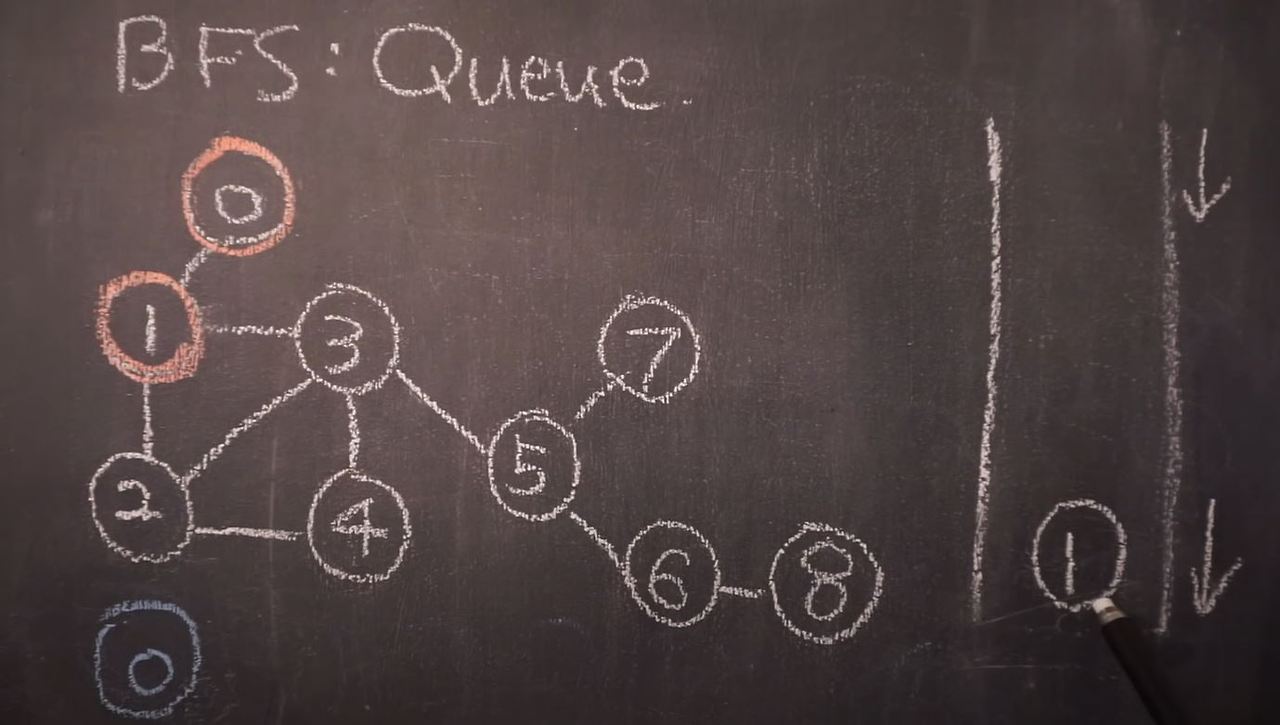 BFS: Queue.
0
1
3
7
2
4
5
6
8
1
0